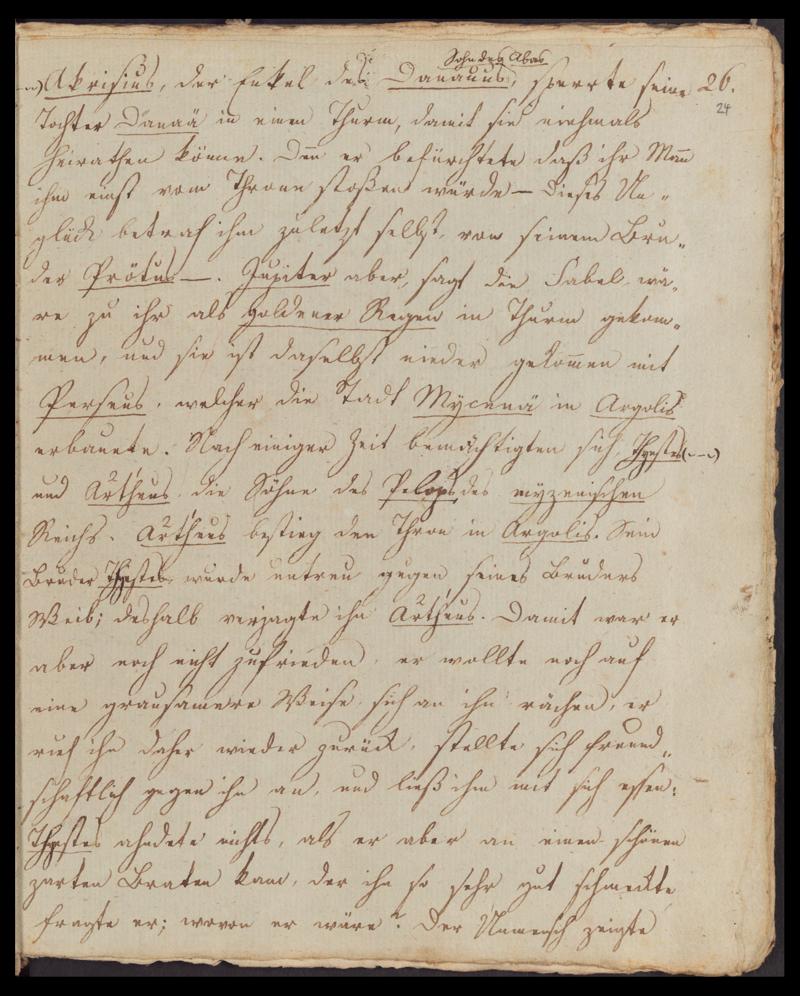 Sohn des Abas
Akrisius, der Enkel des Danauus, sperrte seine 26.
24
Tochter Danaä in einen Thurm, damit sie niehmals
heirathen könne. Den er befürchtete daß ihr Man
ihn einst vom Throne stoßen würde — Dieses Un„
glück betraf ihn zuletzt selbst, von seinem Bru„
der Prötus —. Jupiter aber, sagt die Fabel wä„
re zu ihr als goldener Regen in Thurm gekom„
men, und sie ist daselbst nieder gekommen mit
Perseus, welcher die Stadt Mycenä in Argolis
erbauete. Nach einiger Zeit bemächtigten sich Thyestes
und Ärtheus, die Söhne des Pelops des myzenischen
Reichs. Ärtheus bestieg den Thron in Argolis. Sein
Bruder Thyestes, wurde untreu gegen seines Bruders
Weib; deshalb verjagte ihn Ärtheus. Damit war er
aber noch nicht zufrieden, er wollte noch auf
eine grausamere Weise sich an ihn rächen, er
rief ihn daher wieder zurück, stellte sich freund„
schaftlich gegen ihn an, und ließ ihn mit sich essen:
Thyestes ahndete nichts, als er aber an einen schönen
zarten Braten kam, der ihn so sehr gut schmeckte,
fragte er; wovon er wäre? Der Unmensch zeigte